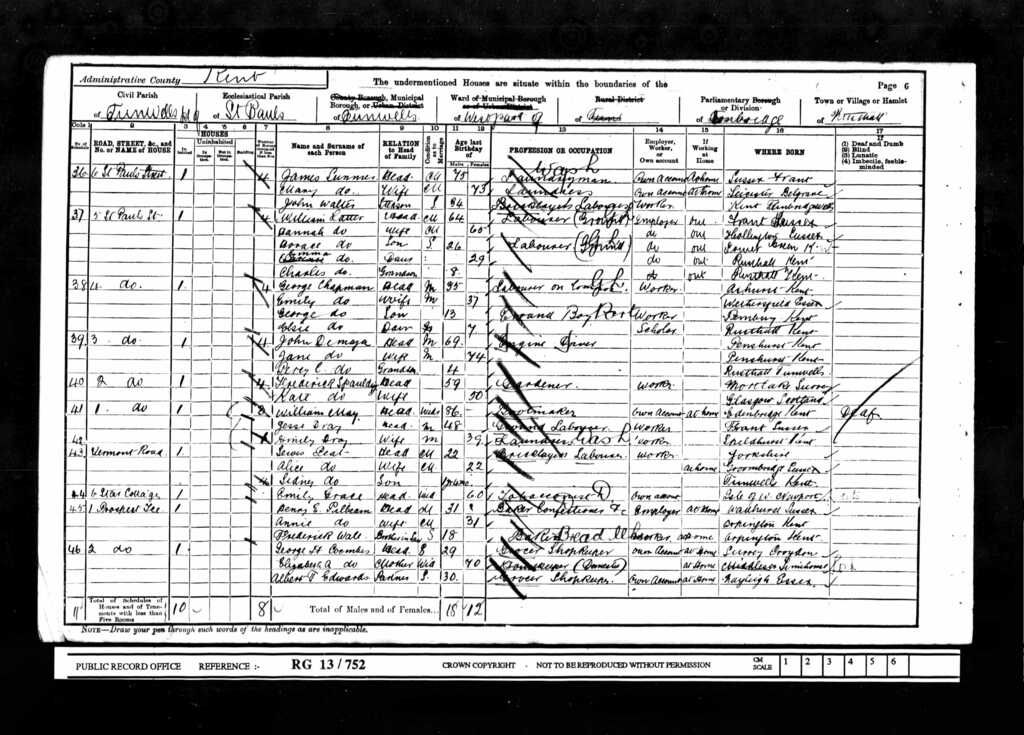 Administrative County Kent
The undermentioned Houses are situate within the boundaries of the
Page 6
Civil Parish
of Tunwells
Ecclesiastical Parish
of St Pauls
County Borough, Municipal Borough, or Urban District
of Tunwells
Ward of Municipal Borough or of Urban District
of West part of
Rural District
of
Parliamentary Borough or Division
of Tonbridge
Town or Village or Hamlet
of Rusthall
Cols. 1 2 3 4 5 6 7 8 9 10 11 12 13 14 15 16 17
No. of Schedule
ROAD, STREET, &c., and No. or NAME of HOUSE
HOUSES
Inhabited
Uninhabited
Building
Name and Surname of each Person
RELATION to Head of Family
Condition as to Marriage
Age last Birthday of
Males Females
PROFESSION OR OCCUPATION
Employer, Worker, or Own account
If Working at Home
WHERE BORN
(1) Deaf and Dumb
(2) Blind
(3) Lunatic
(4) Imbecile, feeble-minded
Wash
36 6 St Pauls Street 1 4 James Head M 75 Laundryman Own Account at home Sussex Frant
Mary do Wife M 73 Laundress Own Account at home Leicester Belgrave
John Walter S 34 Bricklayers Labourer Worker Kent
37 5 St Pauls St 1 4 William Head M 64 Labourer Employer out Frant Sussex
Hannah do Wife M 60 do out Hollington Sussex
Horace do Son S 26 Labourer do out
Emma do Daur 29 do out Rusthall Kent
Charles do Grandson 8 do out Rusthall Kent
38 4 do 1 4 George Chapman Head M 35 Labourer on Worker Ashurst Kent
Emily do Wife M 37 Essex
George do Son 13 Errand Boy Worker Pembury Kent
Elsie do Daur 7 Scholar Rusthall Kent
39 3 do 1 4 John Head M 69 Engine Driver Penshurst Kent
Jane do Wife M 74 Penshurst Kent
Percy C. do Grandson 4 Rusthall Tunwells
40 2 do 1 4 Frederick Head 59 Gardener Worker Mortlake Surrey
Kate do Wife 50 Glasgow Scotland
41 1 do 1 William May Head Wid 86 Bootmaker Own account at home Edenbridge Kent Deaf
Jesse Head M 48 Labourer Worker Frant Sussex
42 Emily Wife M 39 Laundress Wash Worker Speldhurst Kent
43 Vermont Road 1 Head M 22 Bricklayers Labourer Worker Yorkshire
Alice do Wife M 22 at home Groombridge Sussex
Sidney do Son Tunwells Kent
44 6 Cottage 1 Head Wid 60 Tobacconist D Own account Isle of W.
45 1 Prospect Tce 1 Henry E. Head M 31 Baker Confectioner &c Employer at Home Wadhurst Sussex
Annie do Wife M 31 Orpington Kent
Frederick Brother in law S 18 Baker Bread Worker at home Orpington Kent
46 2 do 1 George H Coombes Head S 29 Grocer Shopkeeper Own Account at Home Surrey Croydon
Elizabeth A do Mother Wid 70 Housekeeper (Domestic) at Home Middlesex
Albert Edwards Partner S 30 Grocer Shopkeeper Own Account at Home Rayleigh Essex
11 Total of Schedules of Houses and of Tenements with less than Five Rooms 10 8 Total of Males and of Females... 18 12
NOTE—Draw your pen through such words of the headings as are inapplicable.
PUBLIC RECORD OFFICE REFERENCE :- RG 13/752 CROWN COPYRIGHT - NOT TO BE REPRODUCED WITHOUT PERMISSION CM SCALE 1 2 3 4 5 6